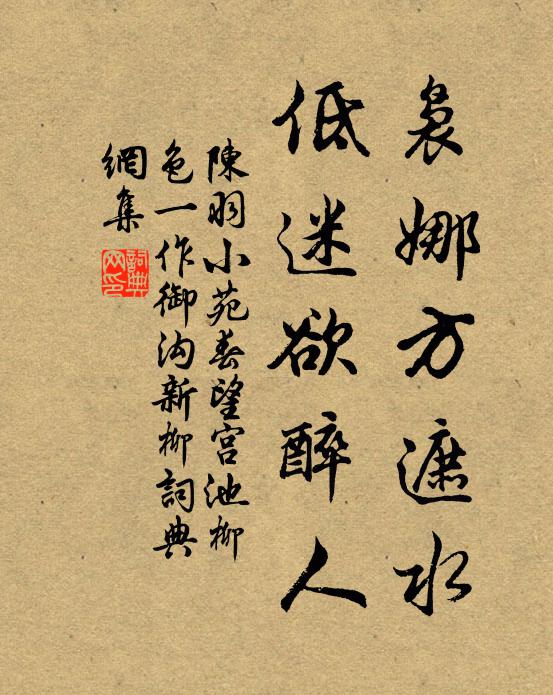 裊娜方遮水
低迷欲醉人
陳羽小苑春望宮池柳
色一作御溝新柳詞典
網集
詞典網印